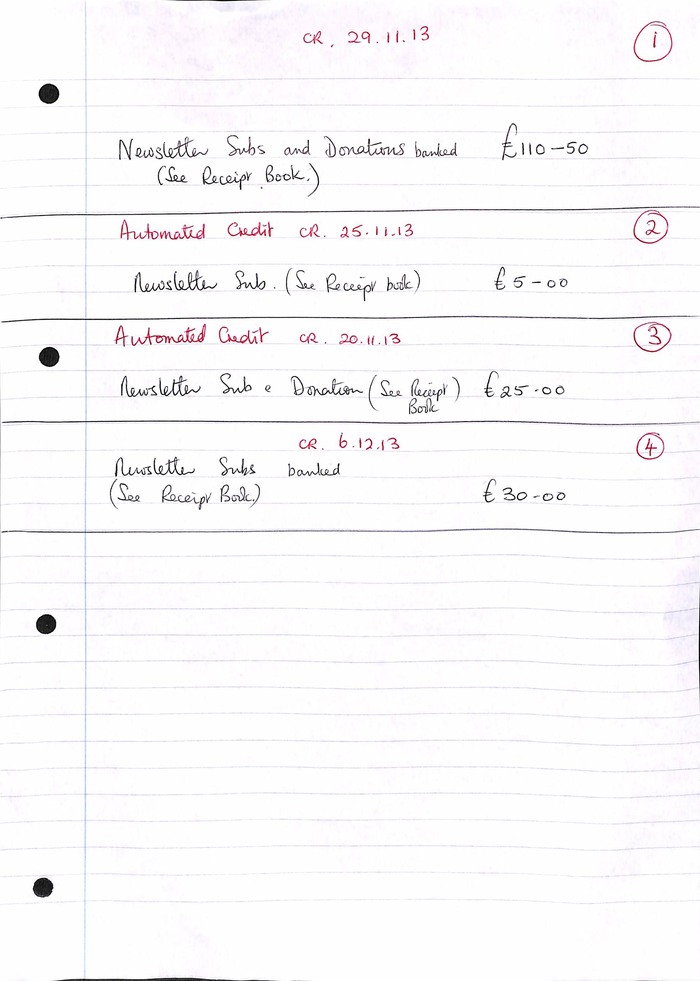 CR. 29.11.13 1
Newsletter Subs and Donations banked £110-50
(See Receipt Book.)
Automated Credit CR. 25.11.13 2
Newsletter Sub. (See Receipt book) £5-00
Automated Credit CR. 20.11.13 3
Newsletter Sub e Donation (See Receipt) £25.00
Book
CR. 6.12.13 4
Newsletter Subs banked
(See Receipt Book.) £30-00